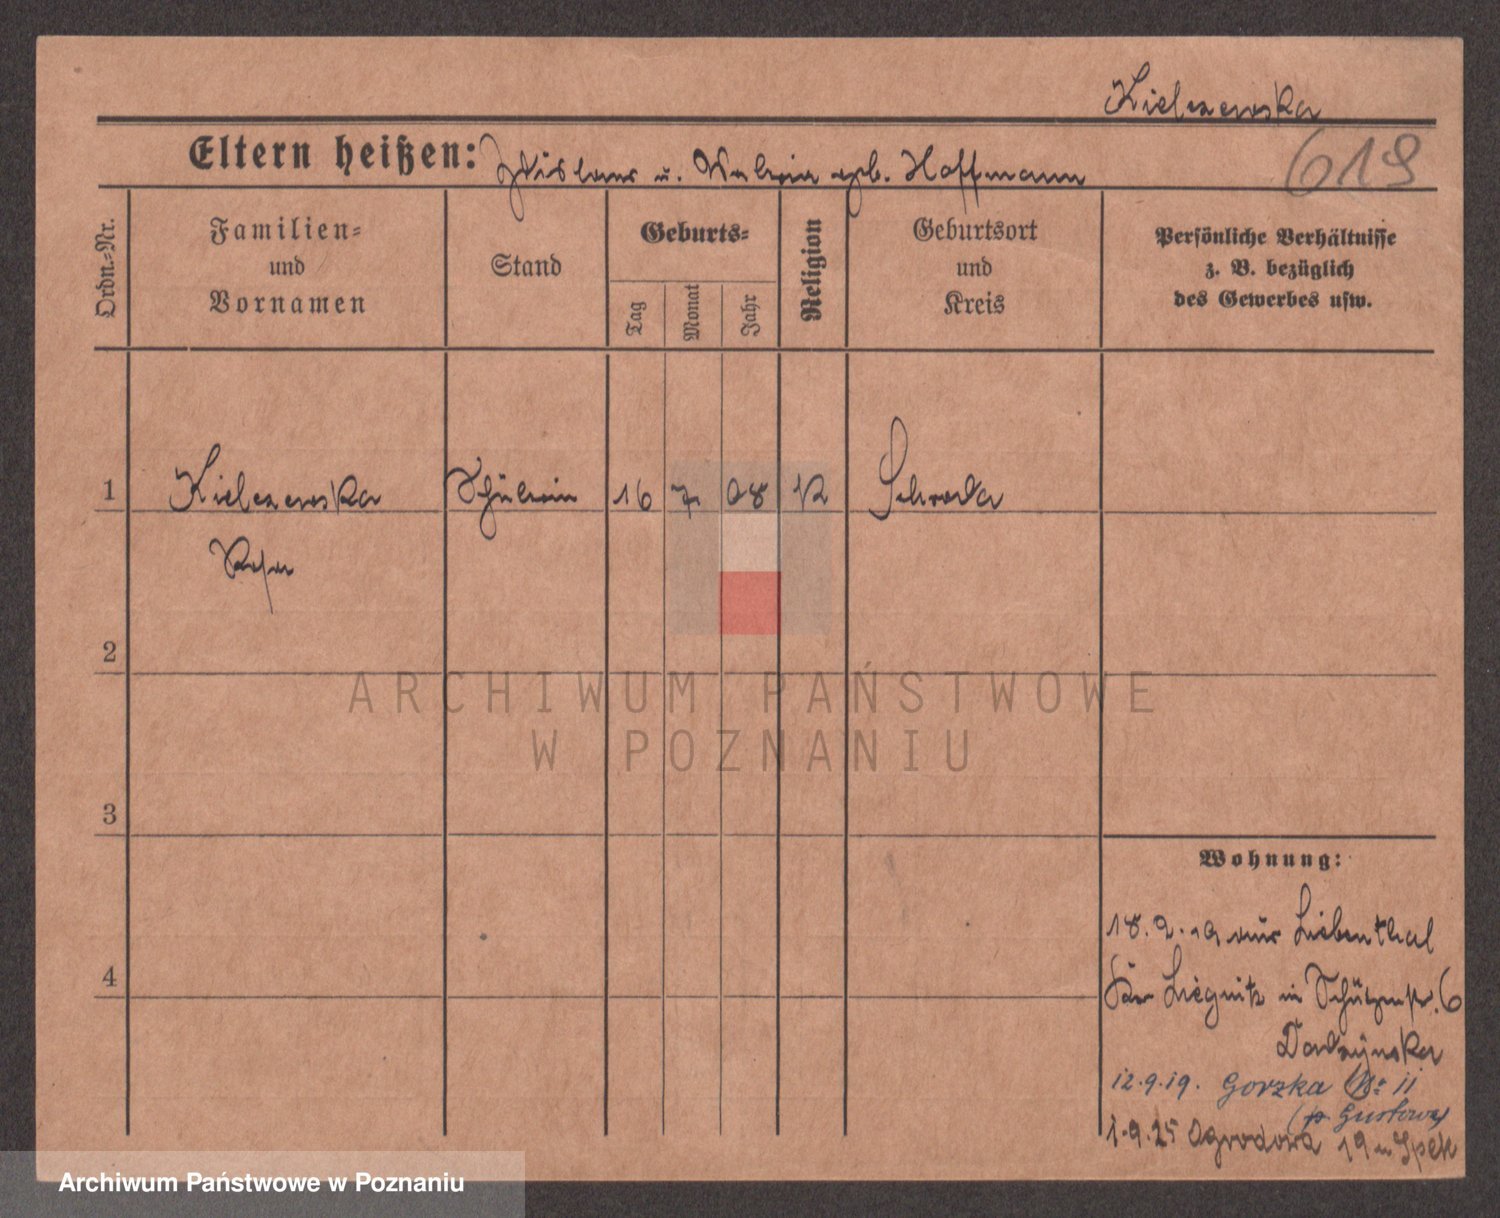 Kielczewska
619
Eltern heißen: Zdislaus u. Valeria geb. Hoffmann
Ordn.-Nr.
Familien-
und
Vornamen
Stand
Geburts-
Tag
Monat
Jahr
Religion
Geburtsort
und
Kreis
Persönliche Verhältnisse
z. B. bezüglich
des Gewerbes usw.
1 Kielczewska Schülerin 16 7. 08 K Schroda
2
3
4
Wohnung:
18. 9. 19 aus Liebenthal
Liegnitz in Schützenstr. 6
12.9.19. Gorzka No 11
1.9.25 Ogrodowa 19
ARCHIWUM PAŃSTWOWE
W POZNANIU
Archiwum Państwowe w Poznaniu